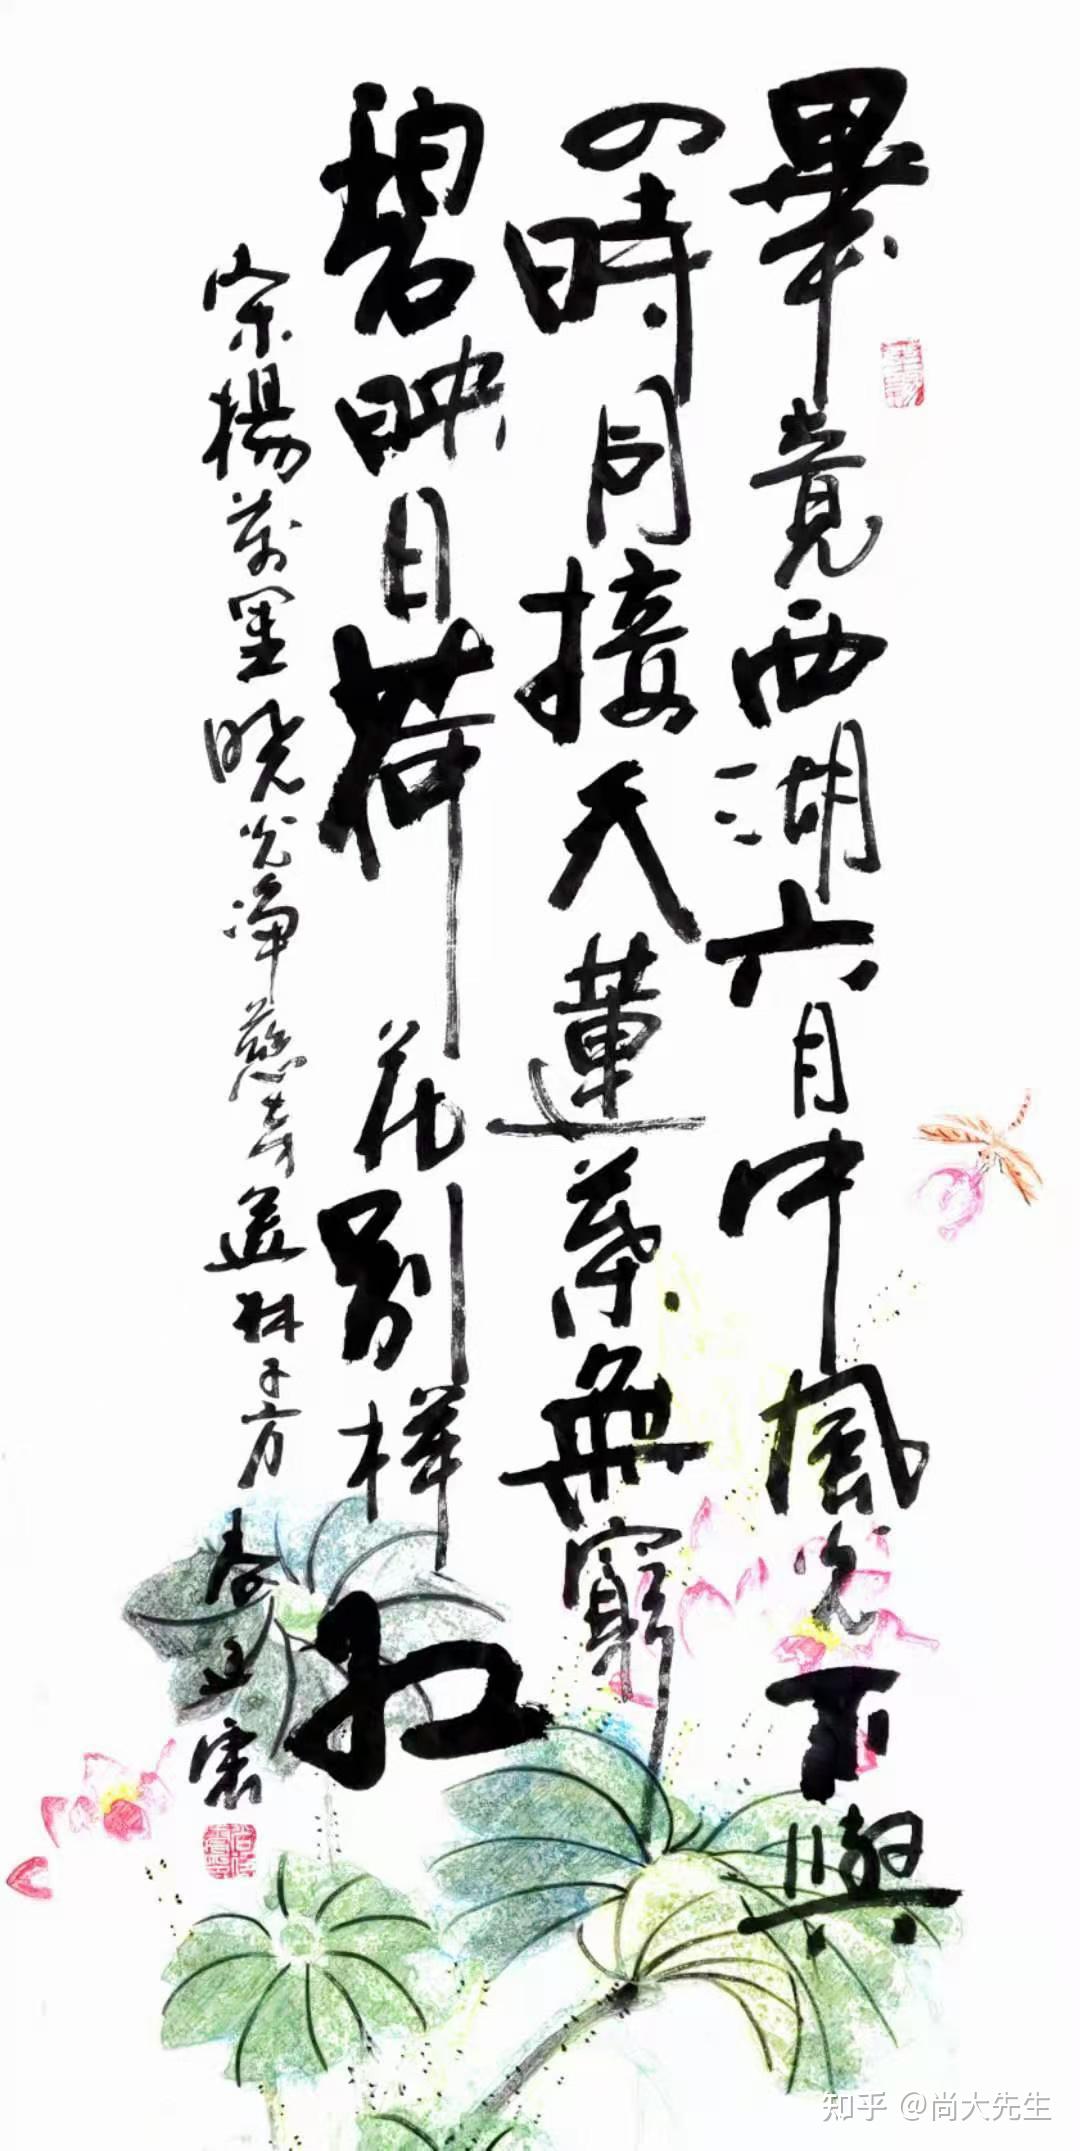 畢竟西湖六月中風光不與
四時同接天蓮葉無窮
碧映日荷花別樣紅
宋楊萬里曉出淨慈寺送林子方
知乎 @尚大先生